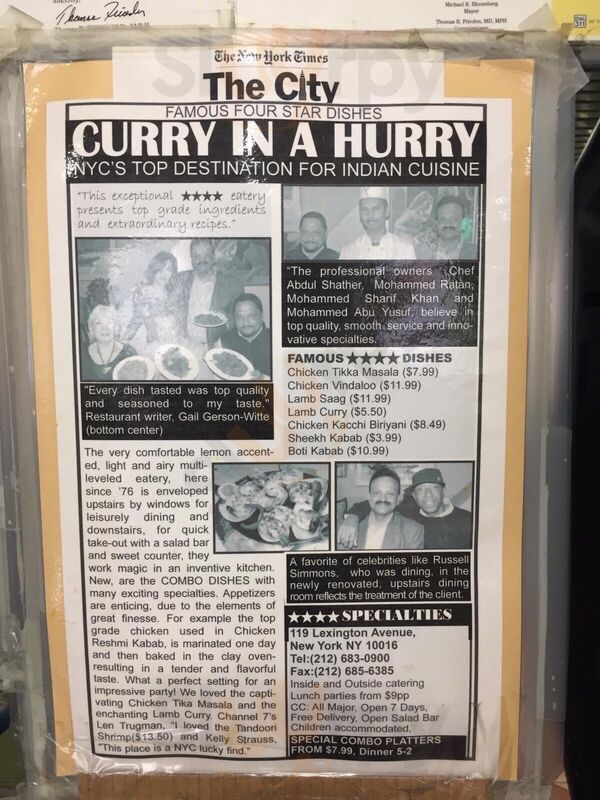 Thomas Frieden
Michael R. Bloomberg
Mayor
Thomas R. Frieden, MD, MPH
311
The New York Times
The City
FAMOUS FOUR STAR DISHES
CURRY IN A HURRY
NYC'S TOP DESTINATION FOR INDIAN CUISINE
"This exceptional ★★★★ eatery
presents top grade ingredients
and extraordinary recipes."
"Every dish tasted was top quality
and seasoned to my taste."
Restaurant writer, Gail Gerson-Witte
(bottom center)
The very comfortable lemon accent-
ed, light and airy multi-
leveled eatery, here
since '76 is enveloped
upstairs by windows for
leisurely dining and
downstairs, for quick
take-out with a salad bar
and sweet counter, they
work magic in an inventive kitchen.
New, are the COMBO DISHES with
many exciting specialties. Appetizers
are enticing, due to the elements of
great finesse. For example the top
grade chicken used in Chicken
Reshmi Kabab, is marinated one day
and then baked in the clay oven-
resulting in a tender and flavorful
taste. What a perfect setting for an
impressive party! We loved the capti-
vating Chicken Tika Masala and the
enchanting Lamb Curry. Channel 7's
Len Trugman, "I loved the Tandoori
Shrimp($13.50) and Kelly Strauss,
"This place is a NYC lucky find."
"The professional owners Chef
Abdul Shather, Mohammed Ratan,
Mohammed Sharif Khan and
Mohammed Abu Yusuf, believe in
top quality, smooth service and inno-
vative specialties.
FAMOUS ★★★★ DISHES
Chicken Tikka Masala ($7.99)
Chicken Vindaloo ($11.99)
Lamb Saag ($11.99)
Lamb Curry ($5.50)
Chicken Kacchi Biriyani ($8.49)
Sheekh Kabab ($3.99)
Boti Kabab ($10.99)
A favorite of celebrities like Russell
Simmons, who was dining, in the
newly renovated, upstairs dining
room reflects the treatment of the client.
★★★★ SPECIALTIES
119 Lexington Avenue,
New York NY 10016
Tel:(212) 683-0900
Fax:(212) 685-6385
Inside and Outside catering
Lunch parties from $9pp
CC: All Major, Open 7 Days,
Free Delivery, Open Salad Bar
Children accommodated,
SPECIAL COMBO PLATTERS
FROM $7.99, Dinner 5-2